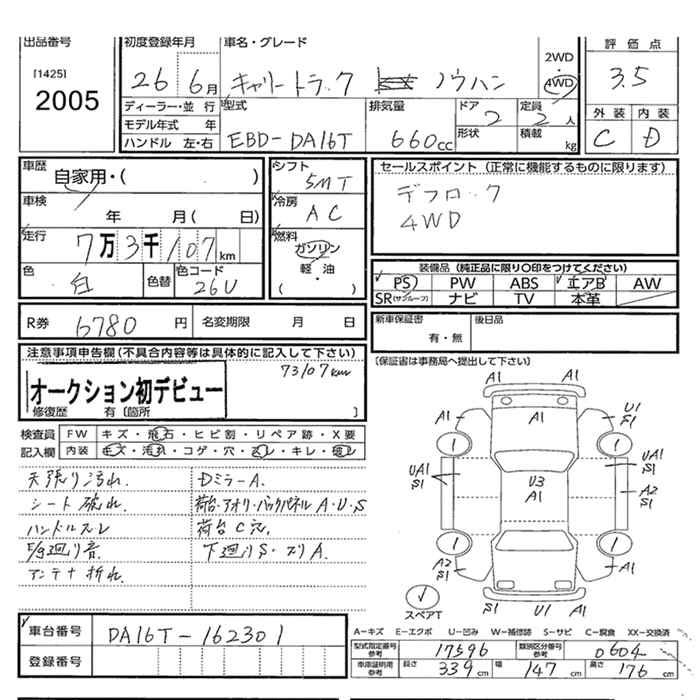 出品番号
[1425]
2005
初度登録年月
26 6月
車名・グレード
キャリートラック ノウハン
2WD
・
4WD
評価点
3.5
外装 内装
C D
ディーラー・並行
モデル年式 年
ハンドル 左・右
型式
EBD-DA16T
排気量
660cc
ドア
2
形状
定員
2人
積載
kg
車歴
自家用・( )
車検
年 月( 日)
走行
7万3千107km
色
白
色替
色コード
26U
シフト
5MT
冷房
AC
燃料
ガソリン
・
軽・油
( )
セールスポイント (正常に機能するものに限ります)
デフロック
4WD
装備品 (純正品に限り○印をつけてください)
PS PW ABS エアB AW
SR(サンルーフ) ナビ TV 本革
R券 6780円 名変期限 月 日
新車保証書
有・無
後日品
[保証書は事務局へ提出して下さい]
注意事項申告欄(不具合内容等は具体的に記入して下さい)
73107km
オークション初デビュー
修復歴 有 [箇所 ]
検査員
記入欄
FW キズ・飛石・ヒビ割・リペア跡・X要
内装 キズ・汚れ・コゲ・穴・スレ・キレ・破レ
天張り汚れ.
シート破れ.
ハンドルスレ
E/g廻り音.
アンテナ折れ.
Dミラー A.
荷台・アオリ・バックパネル A・U・S
荷台 C 穴.
下廻り S・スリ A.
A1
A1
A1
A1
U1
S1
1
1
UA1
S1
U3
A1
UA1
S1
A2
S1
1
1
A2
S1
A1
S1
U1
A1
スペアT
車台番号 DA16T-162301
登録番号
A-キズ E-エクボ U-凹み W-補修跡 S-サビ C-腐食 XX-交換済
型式指定番号
参考
17596
類別区分番号
参考
0604
車庫証明用
参考
長さ 339cm 幅 147cm 高さ 176cm